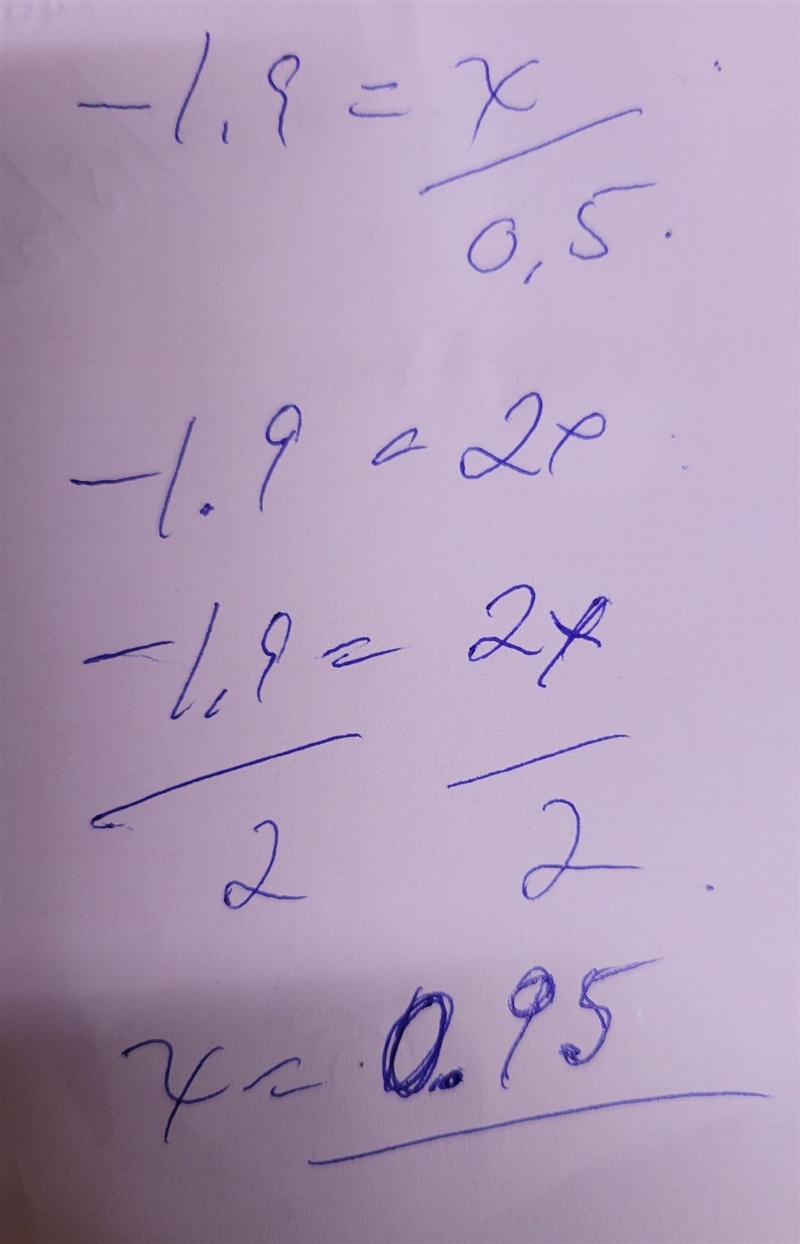 -1,9 = x
0,5.
-1.9 = 2x
-1,9 = 2x
2 2
x = 0.95